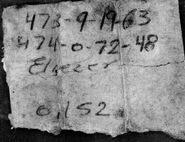 473-9-19-63
474-0-72-48
Ebezer
0,152